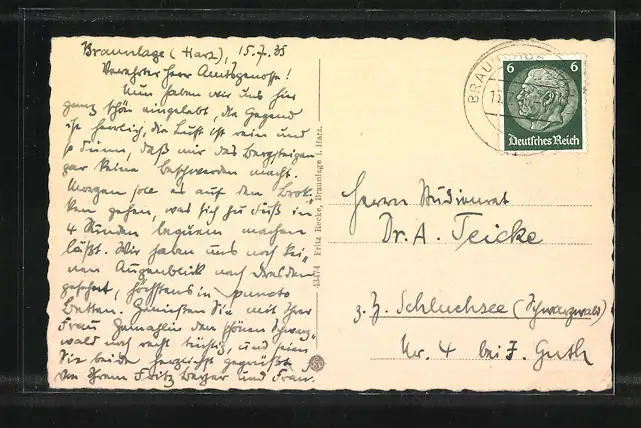 Braunlage (Harz), 15.7.35
Verehrter Herr Amtsgenosse!
Nun haben wir uns hier
ganz schön eingelebt, die Gegend
ist herrlich, die Luft ist rein und
so dünn, daß mir das Bergsteigen
gar keine Beschwerden macht.
Morgen soll es auf den Brok-
ken gehen, was sich zu Fuß in
4 Stunden bequem machen
läßt. Wir haben uns noch kei-
nen Augenblick nach Dresden
gesehnt, höchstens in puncto
Betten. Genießen Sie mit Ihrer
Frau Gemahlin den schönen Schwarz-
wald noch recht tüchtig, und seien
Sie beide herzlichst gegrüßt
von Ihrem Fritz Beyer und Frau.
43474 Fritz Recke, Braunlage i. Harz.
BRAUNLAGE
6 6
Deutsches Reich
Herrn Studienrat
Dr. A. Teicke
z. Z. Schluchsee (Schwarzwald)
Nr. 4 bei J. Guth